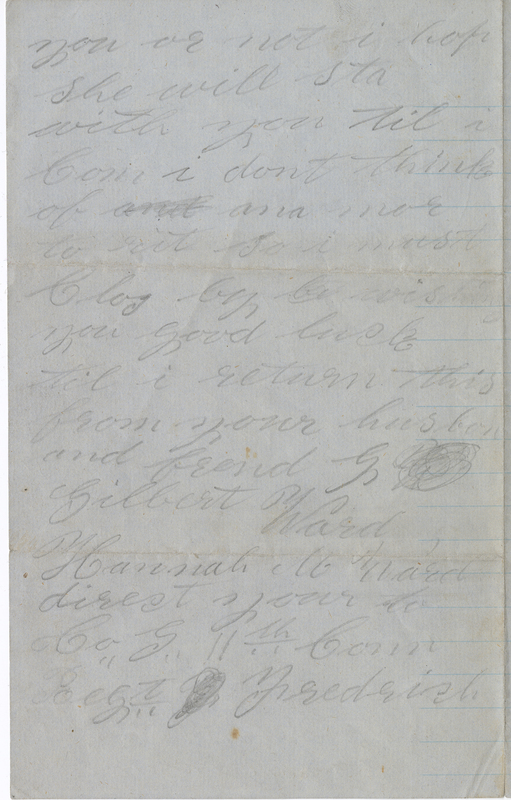 you or not i hop
she will sta
with you til i
Com i dont think
of and ana mor
to rit so i must
Clos by wis
you good luck
til i return this
from your husbon
and frend G
Gilbert Ward
Hannah M Ward
direst your to
Co G 11th Conn
Regt Fredrick